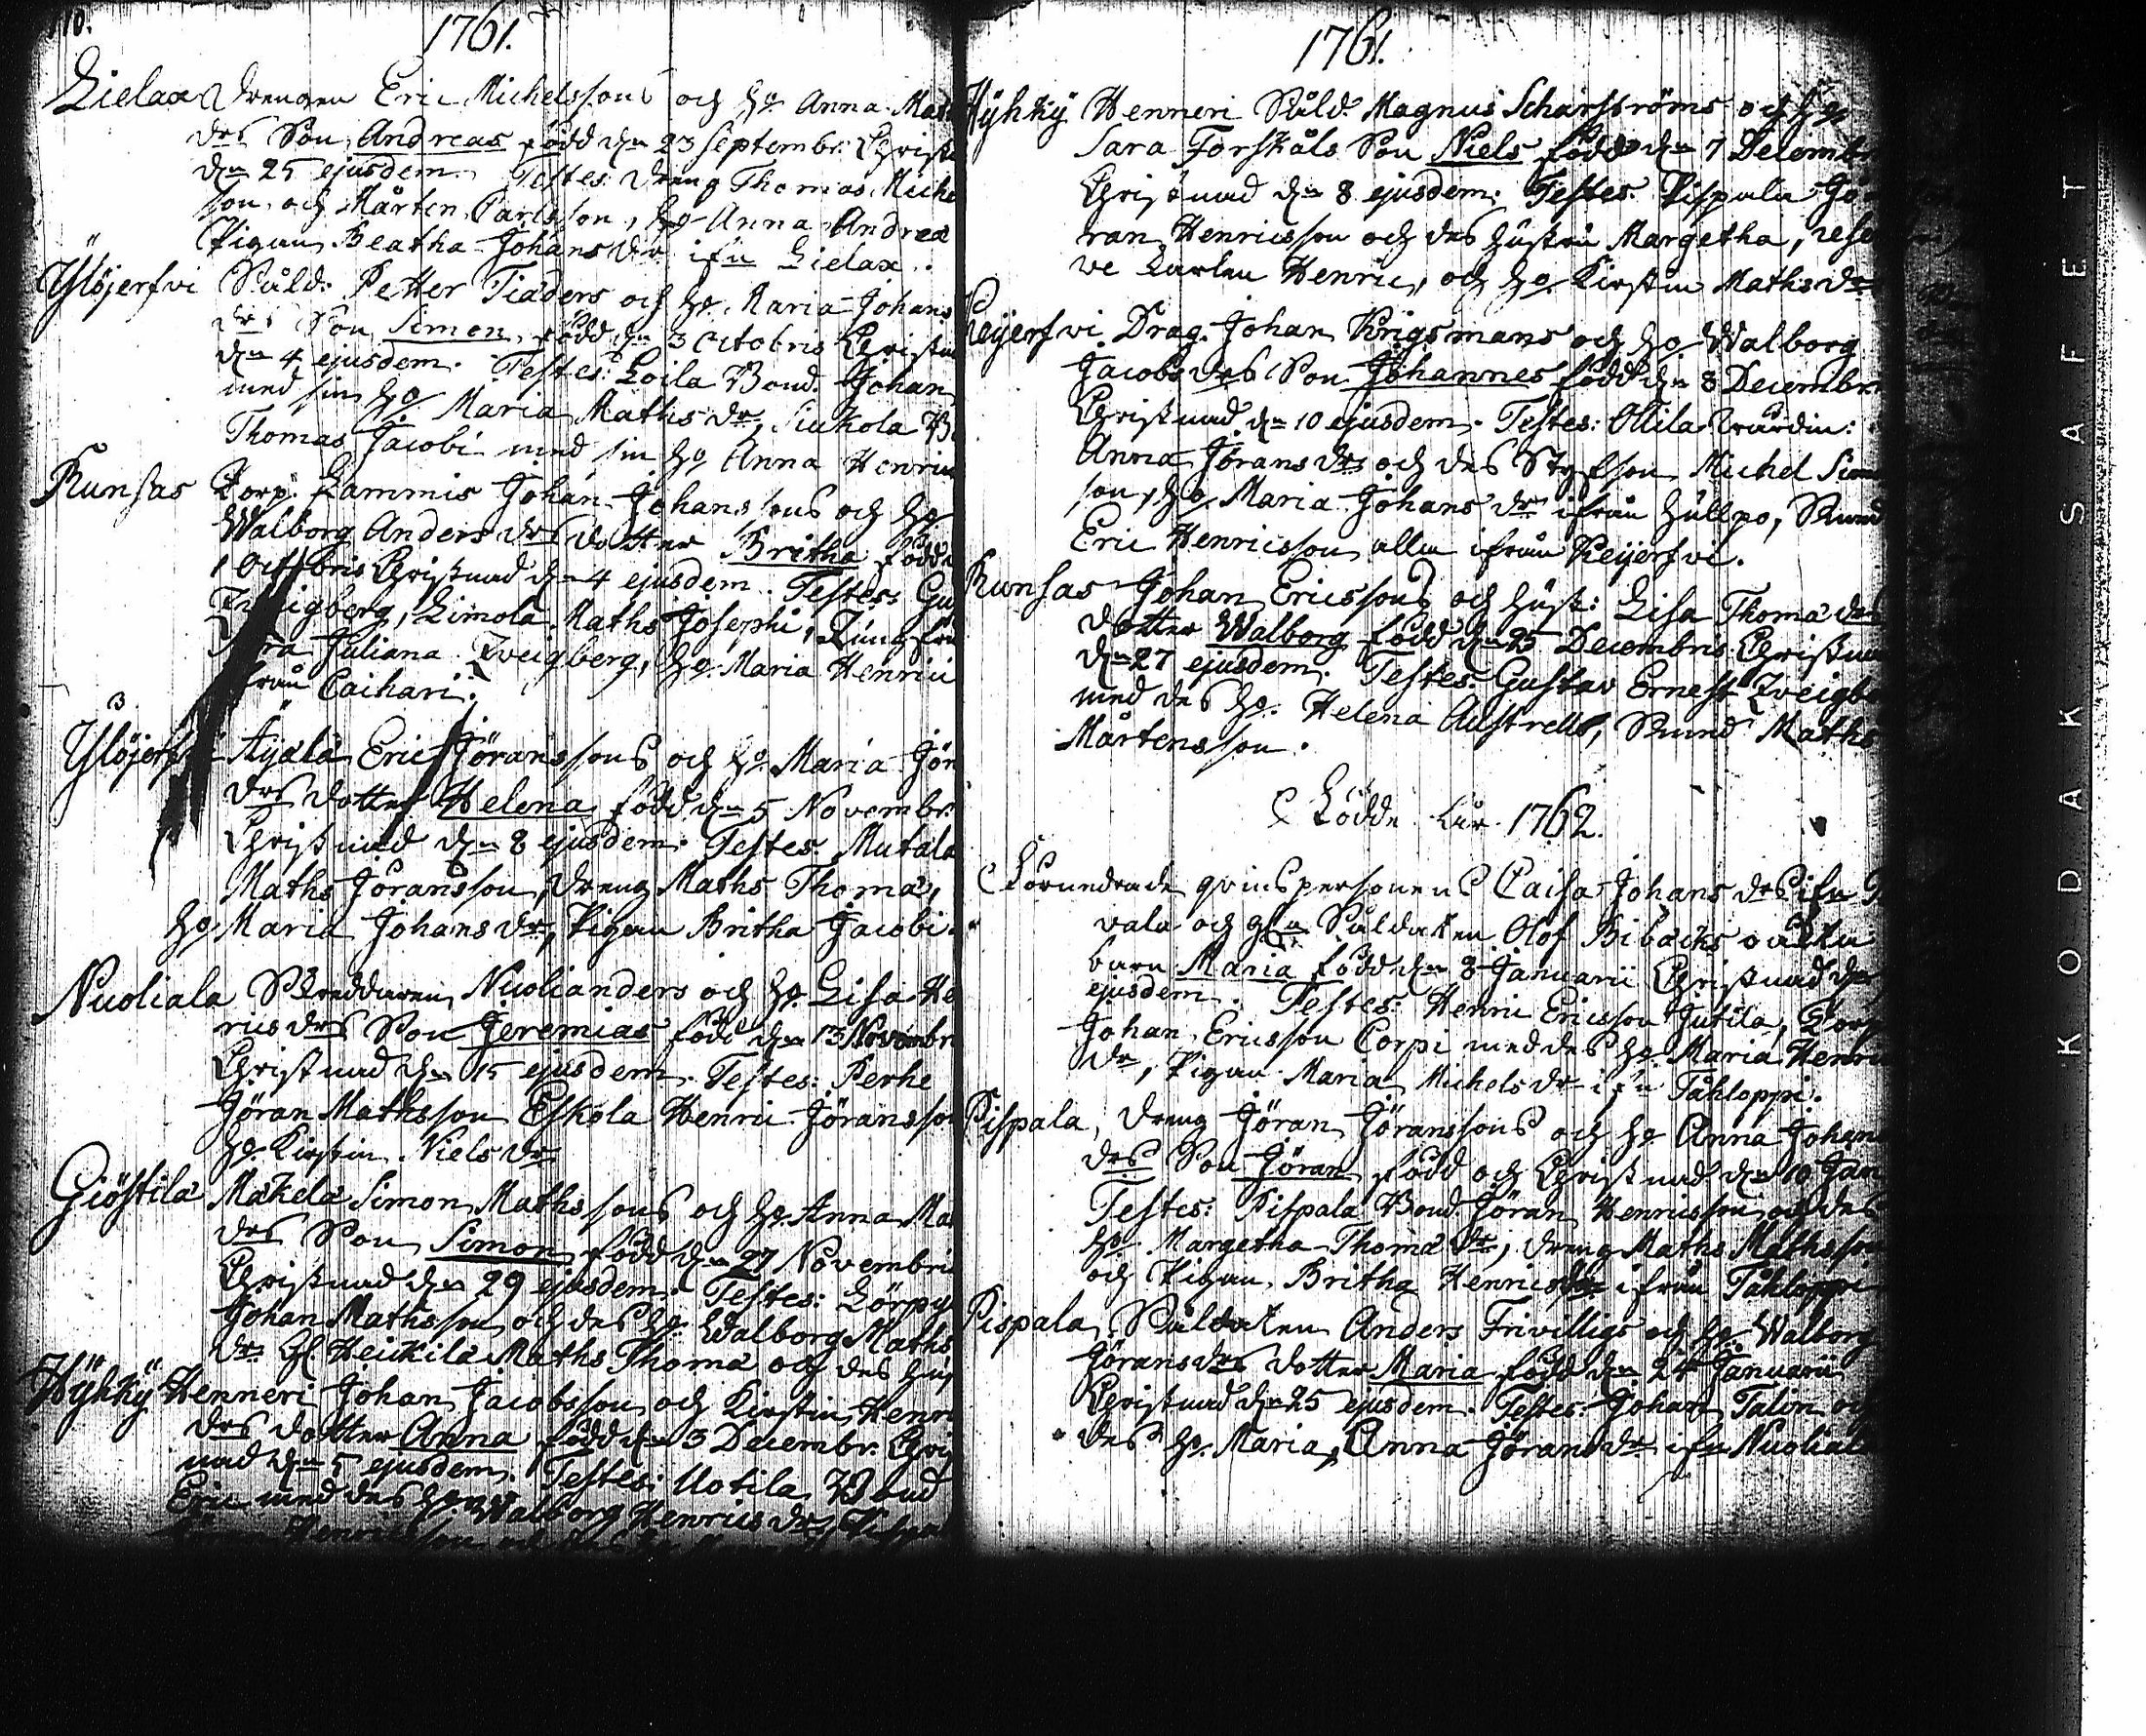 10.
1761.
Lielax Drengen Eric Michelssons och ho Anna Math
drs Son Andreas född dn 23 Septembr. Christ
dn 25 ejusdem. Testes: Dreng Thomas Miche
son, och Mårten Carlsson, ho Anna Andreæ
Pigan Beatha Johans dr ifn Lielax.
Ylöjerfvi Såld: Petter Tiäders och ho Maria Johans
drs Son Simon, född dn 3 Octobris Christn
dn 4 ejusdem. Testes: Loila Bond. Johan
med sin ho Maria Maths dr, Siukola B
Thomas Jacobi med sin ho Anna Henric
Runsas Torp. Lammis Johan Johanssons och ho
Walborg Anders drs dotter Britha född
1 Octobris Christnad dn 4 ejusdem. Testes: Gu
Zveigberg, Limola Maths Josephi, Jungfru
Juliana Zveigberg, ho Maria Henrici
från Caihari.
Ylöjerfvi Äijälä Eric Jöranssons och ho Maria Jör
drs dotter Helena född dn 5 Novembr.
Christnad dn 8 ejusdem. Testes: Mutala
Maths Jöransson, Dreng Maths Thomæ,
ho Maria Johans dr, Pigan Britha Jacobi
Nuoliala Skreddaren Nuolianders och ho Lisa He
rics drs Son Jeremias född dn 13 Novembr
Christnad dn 15 ejusdem. Testes: Perhe
Jöran Mathsson Eskola Henric Jöransson
ho Kirstin Niels dr
Giöstilä Mäkelä Simon Mathssons och ho Anna Ma
drs Son Simon född dn 27 Novembris
Christnad dn 29 ejusdem. Testes: Lörpy
Johan Mathsson och des ho Walborg Maths
dr Heickilä Maths Thomæ och des hus
Hyhky Henneri Johan Jacobsson och Kirstin Henri
drs dotter Anna född dn 3 Decembr. Chris
nad dn 5 ejusdem. Testes: Uotila Bond
Eric med des ho Walborg Henrics dr, Pispa
1761.
Hyhky Henneri Såld. Magnus Scharströms och ho
Sara Forskåls Son Niels född dn 7 Decembr
Christnad dn 8 ejusdem. Testes: Pispala Jö
ran Henricsson och des hustru Margetha, rese
ve Karlen Henric, och ho Kirstin Maths dr
Keijerfvi Drag. Johan Krigsmans och ho Walborg
Jacobs drs Son Johannes född dn 8 Decembr.
Christnad dn 10 ejusdem. Testes: Ollila Wärdin:
Anna Jörans dr och des Styfson Michel Sim
son, ho Maria Johans dr ifrån Hüllpo,
Eric Henricsson alla ifrån Keijerfvi.
Runsas Johan Ericssons och hust: Lisa Thomæ drs
dotter Walborg född dn 25 Decembris Christnad
dn 27 ejusdem. Testes: Gustav Ernest Zveigbe
med des ho. Helena Austrell, Maths
Mårtensson.
Födde åhr 1762.
qvinspersonens Caisa Johans drs ifn
vala och Såldaten Olof Bibäcks oäkta
barn Maria född dn 8 Januarii Christnad dn
ejusdem. Testes: Henric Ericsson Jutila, Torp
Johan Ericsson Corpi med des ho Maria Henric
dr, Pigan Maria Michels dr ifn Tahloppi.
Pispala, Dreng Jöran Jöranssons och ho Anna Johan
drs Son Jöran född och Christnad dn 10 Jan
Testes: Pispala Bond. Jöran Henricsson och des
ho Margetha Thomæ dr, Dreng Maths Mathsson
och Pigan Britha Henrics dr ifrån Tahloppi
Pispala, Såldaten Anders Frivilligs och ho Walborg
Jörans drs dotter Maria född dn 24 Januarii
Christnad dn 25 ejusdem. Testes: Johan Talon och
des ho. Maria, Anna Jörans dr ifn Nuoliala
KODAK SAFETY